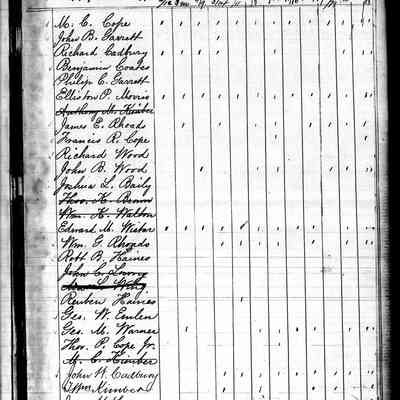 M. C. Cope
John B. Garrett
Richard Cadbury
Benjamin Coates
Philip C. Garrett
Elliston P. Morris
Anthony M. Kimber
James E. Rhoads
Francis R. Cope
Richard Wood
John B. Wood
Joshua L. Baily
Thos. K. Brown
Wm. H. Walton
Edward M. Wistar
Wm. G. Rhoads
Robt B. Haines
John C. Lowry
Reuben Haines
Geo. W. Emlen
Geo. M. Warner
Thos. P. Cope Jr.
M. C. Kimber
John W. Cadbury
Thos. Kimber